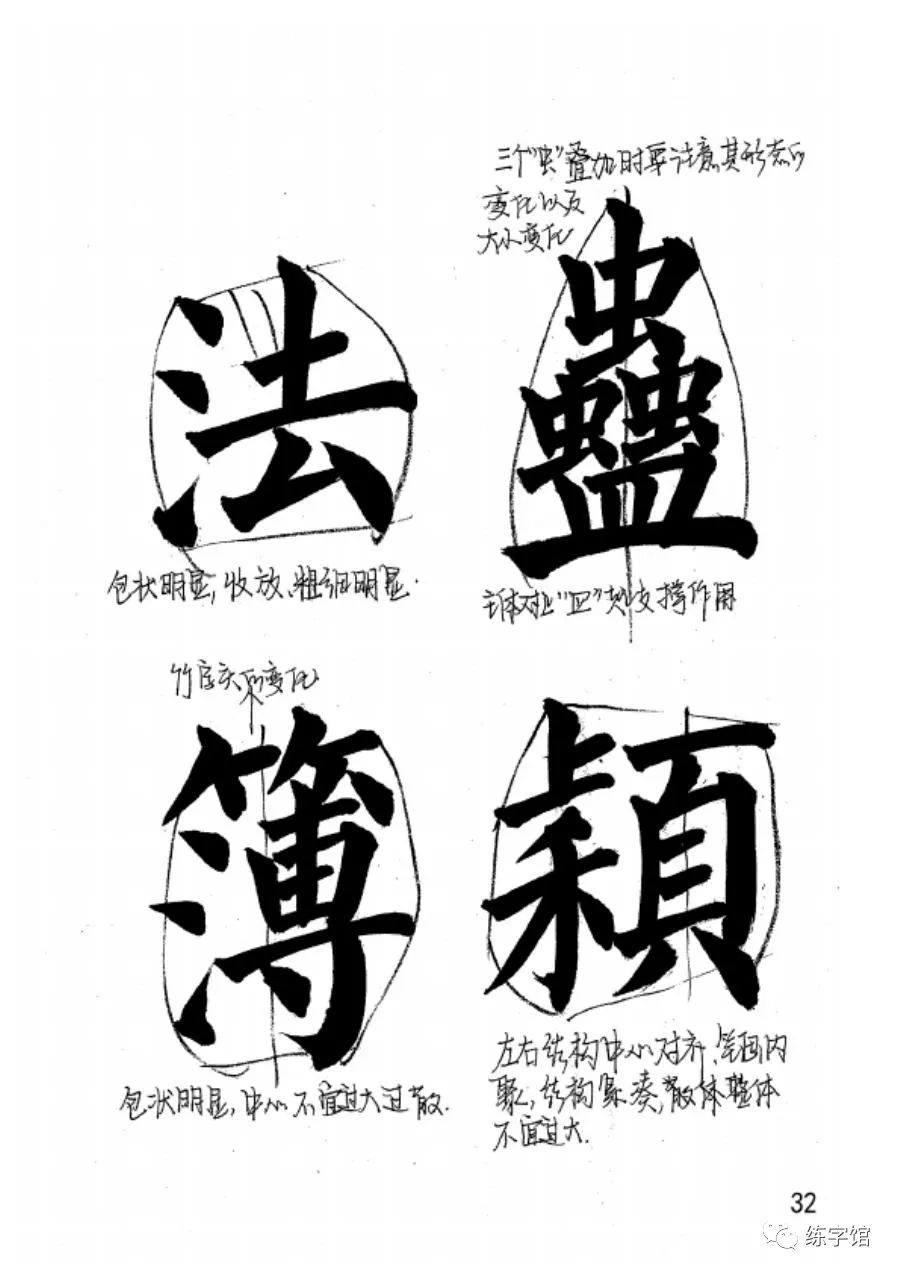 三个“虫”叠加时要注意其形态的
变化以及
大小变化
法
蠱
包状明显,收放、粗细明显.
对比“皿”起支撑作用
竹字头的变化
簿
穎
包状明显,中心不宜过大过散.
左右结构中心对齐,笔画内
聚,结构紧凑,散体整体
不宜过大.
32
练字馆